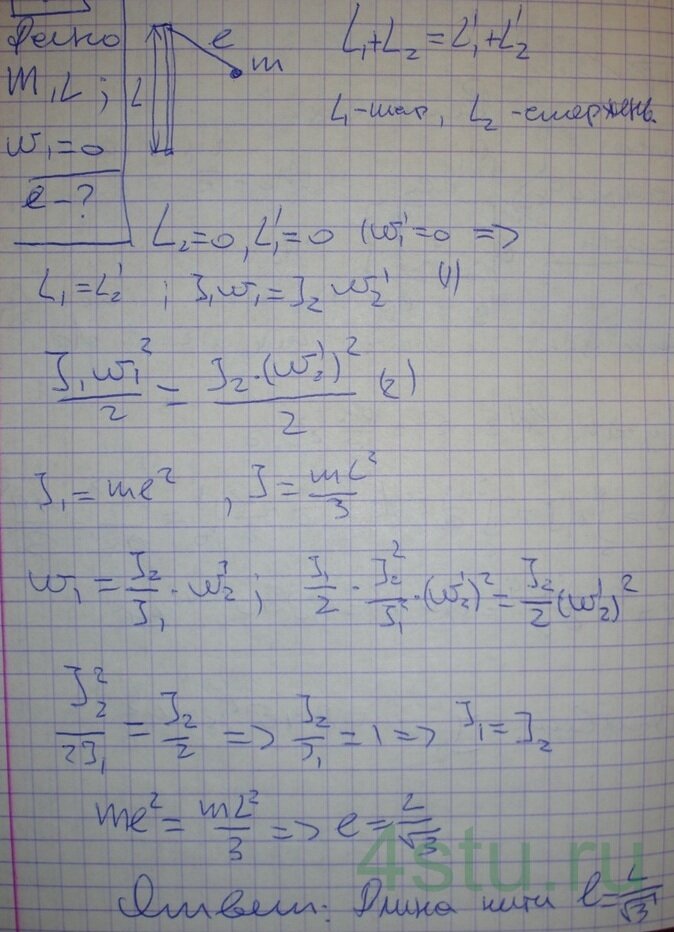 Дано
m, L;
ω₁=0
l-?
L
l
m
L₁+L₂=L₁'+L₂'
L₁-шар, L₂-стержень.
L₂=0, L₁'=0 (ω₁'=0 =>
L₁=L₂' ; J₁ω₁=J₂ω₂' (1)
J₁ω₁²/2 = J₂·(ω₂')²/2 (2)
J₁=ml² , J=mL²/3
ω₁=J₂/J₁·ω₂' ; J₁/2·J₂²/J₁²·(ω₂')²=J₂/2(ω₂')²
J₂²/2J₁=J₂/2 => J₂/J₁=1 => J₁=J₂
ml²=mL²/3 => l=L/√3
4stu.ru
Ответ: Длина нити l=L/√3